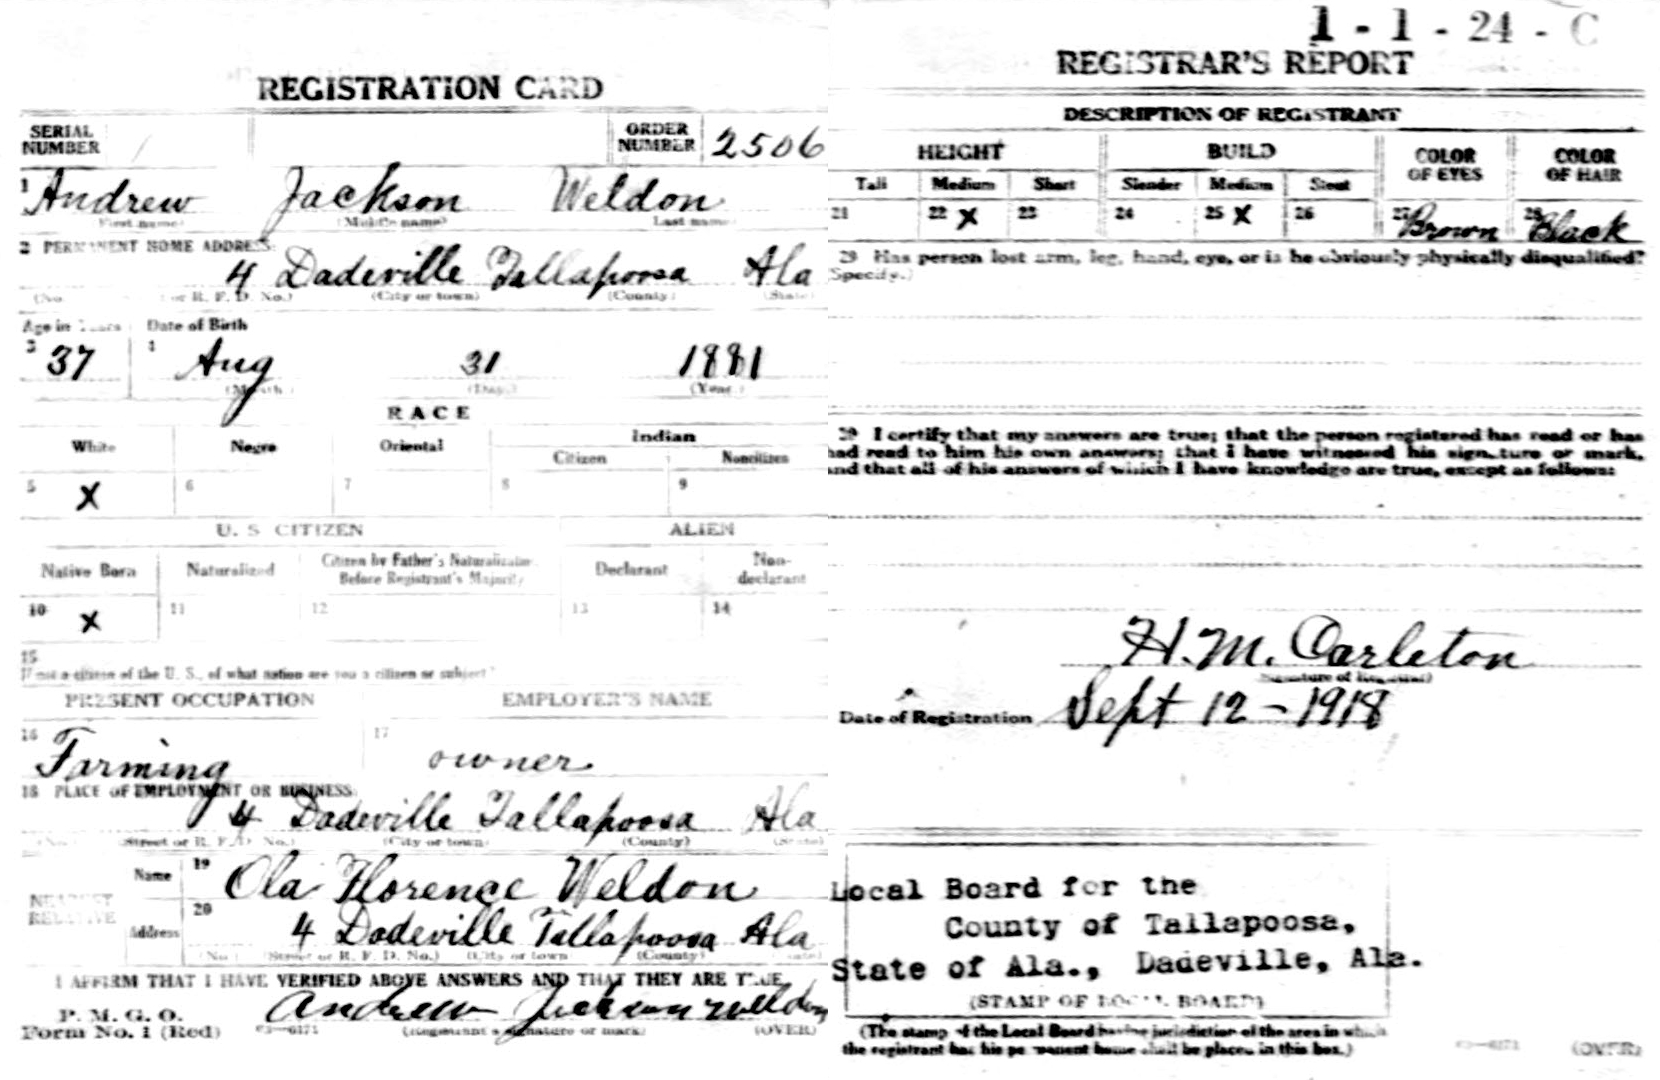 REGISTRATION CARD
SERIAL NUMBER
ORDER NUMBER 2506
1 Andrew Jackson Weldon
(First name) (Middle name) Last name
2 PERMANENT HOME ADDRESS:
4 Dadeville Tallapoosa Ala
(No. or R. F. D. No.) (City or town) (County) (State)
Age in Years Date of Birth
3 37 4 Aug 31 1881
(Month) (Day) (Year)
RACE
White Negro Oriental Indian
Citizen Noncitizen
5 X 6 7 8 9
U. S CITIZEN ALIEN
Native Born Naturalized Citizen by Father's Naturalization Before Registrant's Majority Declarant Non-declarant
10 X 11 12 13 14
15
If not a citizen of the U. S., of what nation are you a citizen or subject?
PRESENT OCCUPATION EMPLOYER'S NAME
16 Farming 17 owner
18 PLACE OF EMPLOYMENT OR BUSINESS:
4 Dadeville Tallapoosa Ala
(No.) Street or R. F. D. No.) (City or town) (County) (State)
NEAREST RELATIVE
Name 19 Ola Florence Weldon
Address 20 4 Dadeville Tallapoosa Ala
(No.) (Street or R. F. D. No.) (City or town) (County) (State)
I AFFIRM THAT I HAVE VERIFIED ABOVE ANSWERS AND THAT THEY ARE TRUE
P. M. G. O.
Form No. 1 (Red)
Andrew Jackson Weldon
(Registrant's signature or mark) (OVER)
1 - 1 - 24 - C
REGISTRAR'S REPORT
DESCRIPTION OF REGISTRANT
HEIGHT BUILD COLOR OF EYES COLOR OF HAIR
Tall Medium Short Slender Medium Stout
21 22 X 23 24 25 X 26 27 Brown 28 Black
29 Has person lost arm, leg, hand, eye, or is he obviously physically disqualified?
(Specify.)
30 I certify that my answers are true; that the person registered has read or has
had read to him his own answers; that I have witnessed his signature or mark,
and that all of his answers of which I have knowledge are true, except as follows:
H. M. Carleton
(Signature of Registrar)
Date of Registration Sept 12 - 1918
Local Board for the
County of Tallapoosa,
State of Ala., Dadeville, Ala.
(STAMP OF LOCAL BOARD)
(The stamp of the Local Board having jurisdiction of the area in which
the registrant has his permanent home shall be placed in this box.)
(OVER)